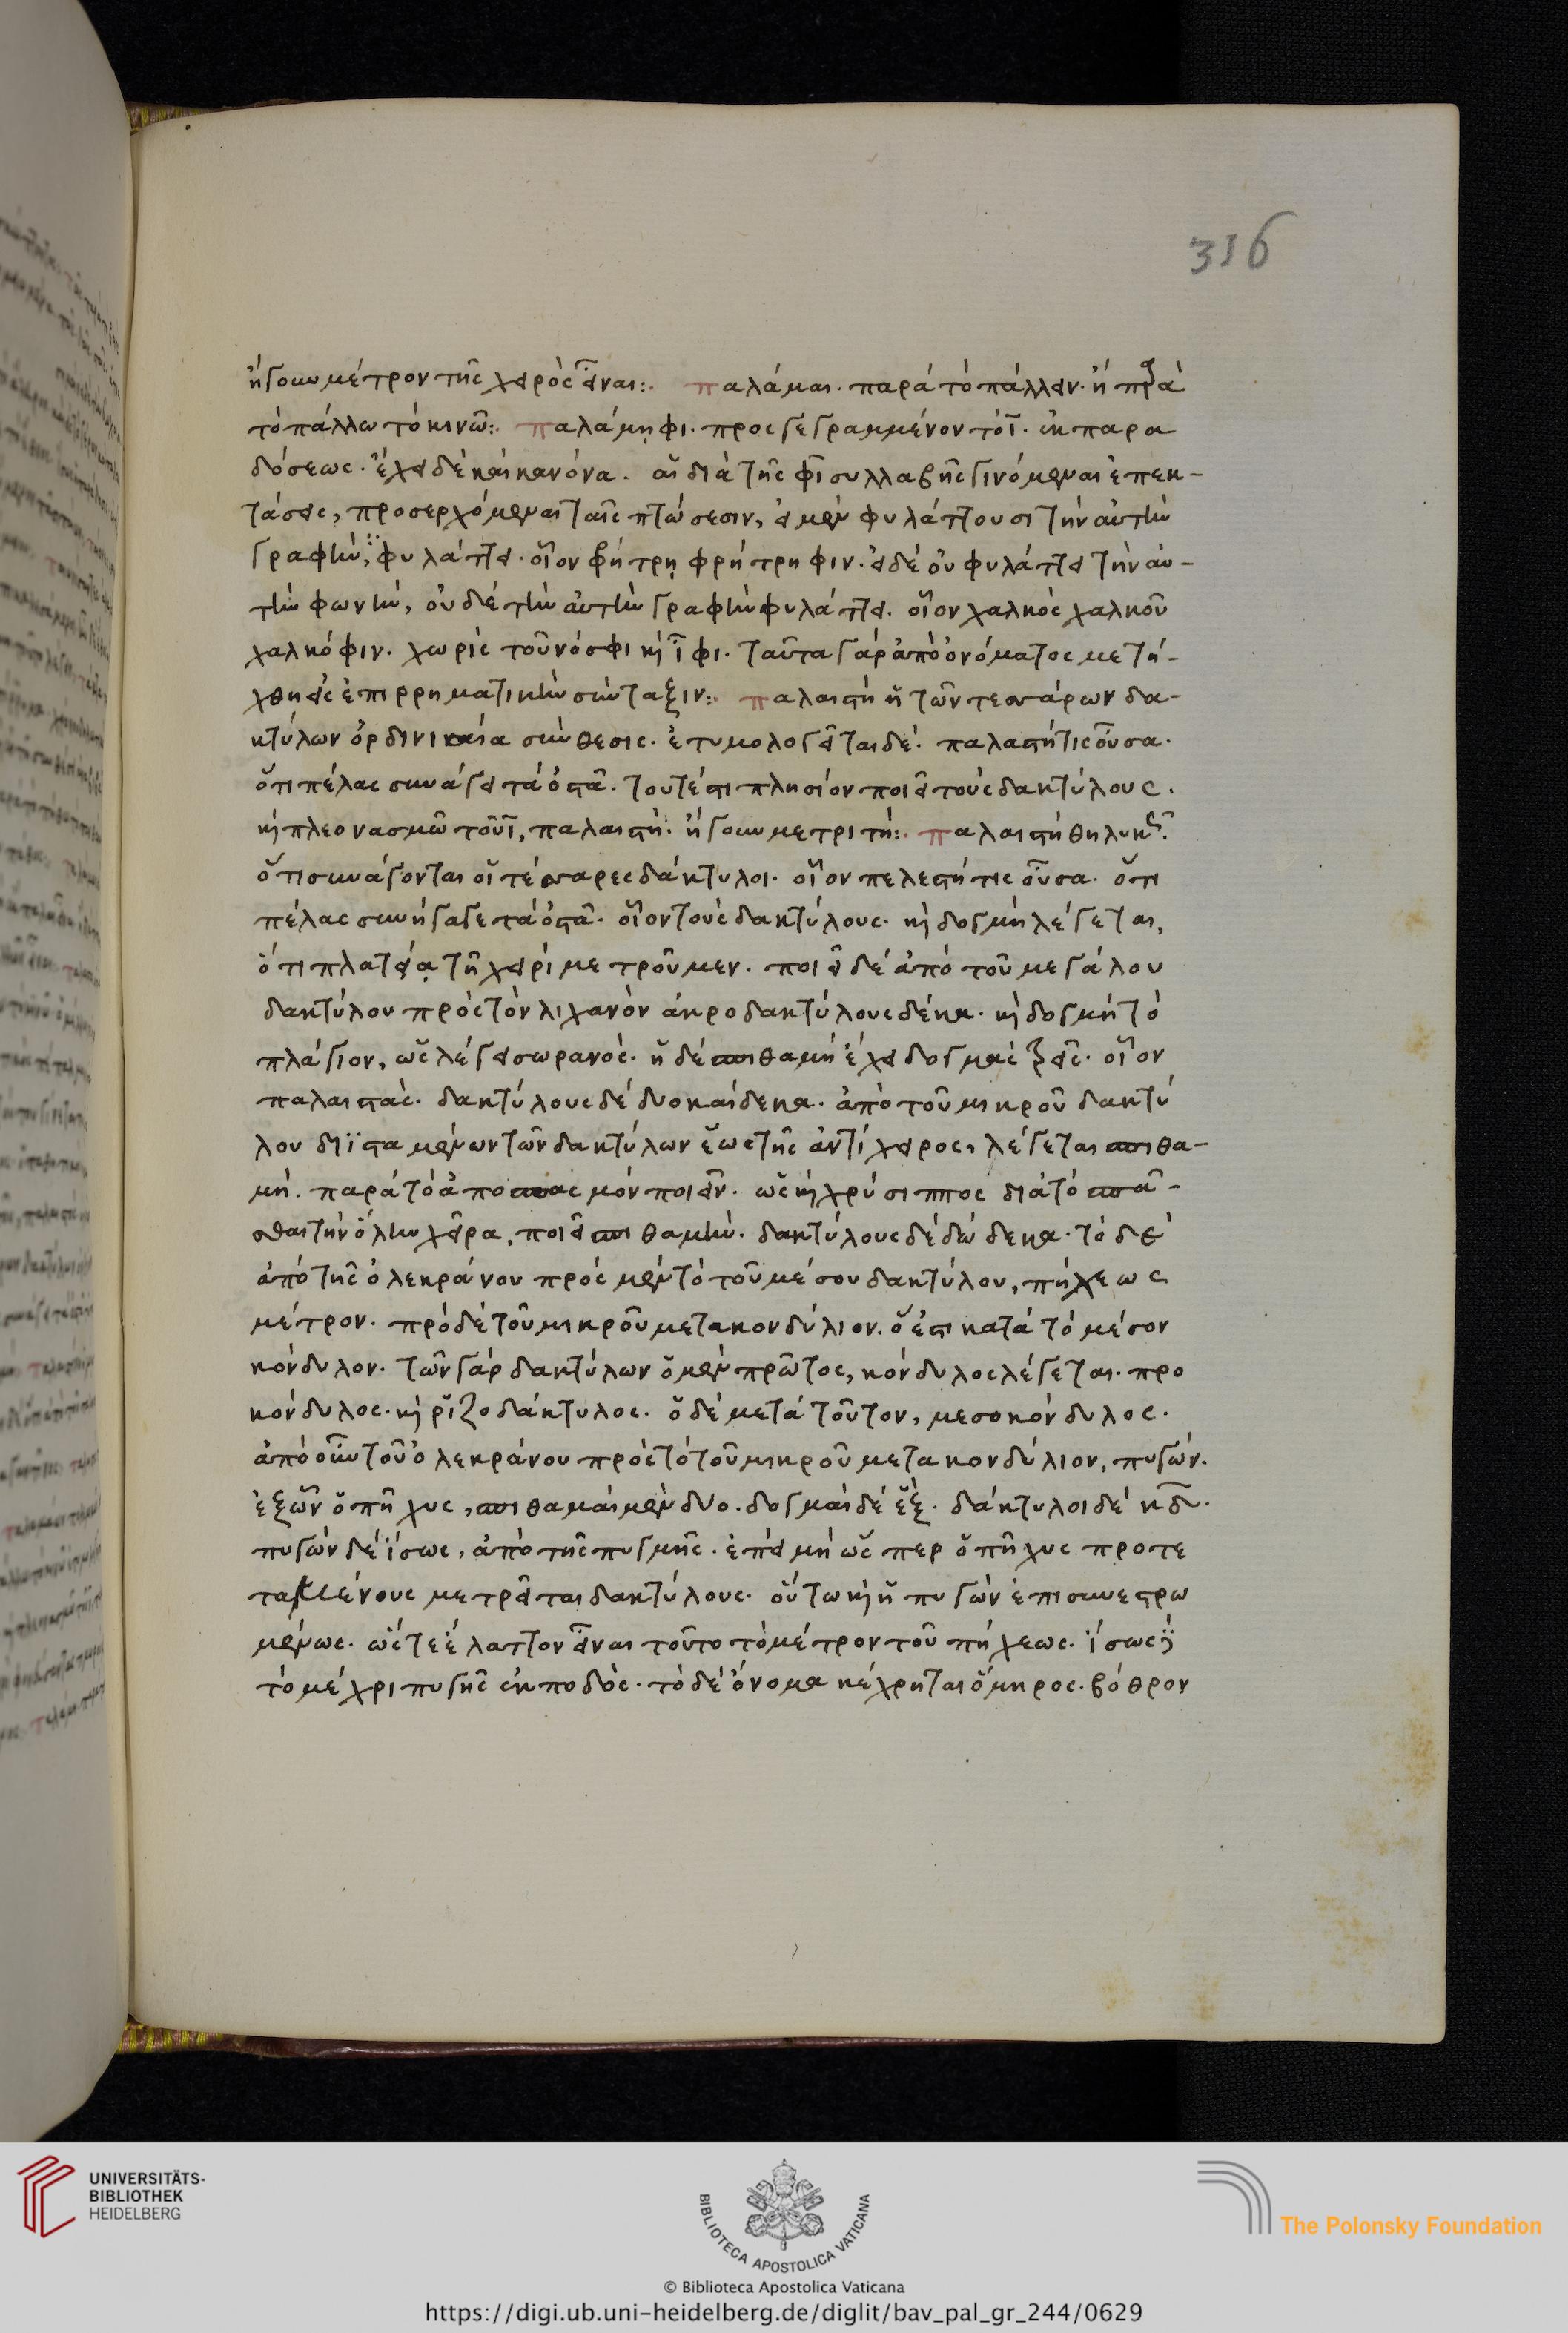 316
ἤγουν μέτρον τῆς χειρὸς εἶναι:. παλάμαι. παρά τὸ πάλλειν. ἢ παρὰ
τὸ πάλλω τὸ κινῶ:. παλάμηφι. προσγεγραμμένον τό ϊ. ἐκ παρα
δόσεως. ἔχει δὲ καὶ κανόνα. αἱ διὰ τῆς φϊ συλλαβῆς γινόμεναι ἐπεκ-
τάσεις, προσερχόμεναι ταῖς πτώσεσιν, εἰ μὲν φυλάττουσι τὴν αὐτὴν
γραφὴν, φυλάττει. οἷον φήτρη φρήτρηφιν. εἰ δὲ οὐ φυλάττει τὴν αὐ-
τὴν φωνὴν, οὐδὲ τὴν αὐτὴν γραφὴν φυλάττει. οἷον χαλκὸς χαλκοῦ
χαλκόφιν. χωρὶς τοῦ νόσφι κὶ ἶφι. ταῦτα γὰρ ἀπὸ ὀνόματος μετή-
χθη εἰς ἐπιρρηματικὴν σύνταξιν:. παλαιστὴ ἡ τῶν τεσσάρων δα-
κτύλων ὀρδινικαία σύνθεσις. ἐτυμολογεῖται δὲ. παλαστή τις οὖσα.
ὅτι πέλας συνάγει τὰ ὀστᾶ. τουτέστι πλησίον ποιεῖ τοὺς δακτύλους.
κὶ πλεονασμῶ τοῦ ϊ, παλαιστὴ. ἤγουν μετριτή:. παλαιστὴ θηλυκῶς.
ὅτι συνάγονται οἱ τέσσαρες δάκτυλοι. οἷον πελεστή τις οὖσα. ὅτι
πέλας συνήγαγε τὰ ὀστᾶ. οἷον τοὺς δακτύλους. κὶ δογμὴ λέγεται,
ὅτι πλατείᾳ τῆ χειρὶ μετροῦμεν. ποιεῖ δὲ ἀπὸ τοῦ μεγάλου
δακτύλου πρὸς τὸν λιχανὸν ἀκροδακτύλους δέκα. κὶ δογμὴ τὸ
πλάγιον, ὡς λέγει σωρανὸς. ἡ δὲ σπιθαμὴ ἔχει δογμὰς τρεῖς. οἷον
παλαιστὰς. δακτύλους δὲ δυοκαίδεκα. ἀπὸ τοῦ μικροῦ δακτύ
λου διϊσταμένων τῶν δακτύλων ἕως τῆς ἀντίχειρος, λέγεται σπιθα-
μή. παρὰ τὸ ἀποσπασμόν ποιεῖν. ὡς κὶ χρύσιππος διὰ τὸ σπᾶ-
σθαι τὴν ὅλην χεῖρα, ποιεῖ σπιθαμὴν. δακτύλους δὲ δώδεκα. τὸ δὲ
ἀπὸ τῆς ὀλεκράνου πρὸς μὲν τὸ τοῦ μέσου δακτύλου, πήχεως
μέτρον. πρὸ δὲ τοῦ μικροῦ μετακονδύλιον. ὅ ἐστι κατὰ τὸ μέσον
κόνδυλον. τῶν γὰρ δακτύλων ὁ μὲν πρῶτος, κόνδυλος λέγεται. προ
κόνδυλος. κὶ ῥιζοδάκτυλος. ὁ δὲ μετὰ τοῦτον, μεσοκόνδυλος.
ἀπὸ οὖν τοῦ ὀλεκράνου πρὸς τὸ τοῦ μικροῦ μετακονδύλιον, πυγών.
ἐξ ὧν ὁ πῆχυς, σπιθαμαὶ μὲν δυο. δογμαὶ δὲ ἕξ. δάκτυλοι δὲ κδ.
πυγὼν δὲ ἴσως, ἀπὸ τῆς πυγμῆς. ἐπεὶ μὴ ὥσπερ ὁ πῆχυς προτε
ταμένους μετρεῖται δακτύλους. οὕτω κὶ ἡ πυγὼν ἐπισυνεστρω
μένως. ὥστε ἔλαττον εἶναι τοῦτο τὸ μέτρον τοῦ πήχεως. ἴσως
τὸ μέχρι πυγῆς ἐκ ποδὸς. τὸ δὲ ὄνομα κέχρηται ὅμηρος. βόθρον
UNIVERSITÄTS-
BIBLIOTHEK
HEIDELBERG
BIBLIOTECA APOSTOLICA VATICANA
The Polonsky Foundation
© Biblioteca Apostolica Vaticana
https://digi.ub.uni-heidelberg.de/diglit/bav_pal_gr_244/0629